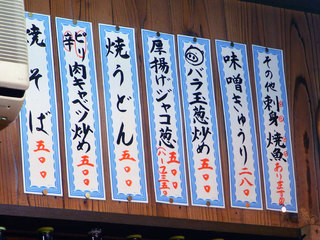 その他 刺身 焼魚 あります
味噌きゅうり 二八〇
バラ玉葱炒め 五〇〇
厚揚げジャコ葱 五〇〇
焼うどん 五〇〇
ピリ辛肉キャベツ炒め 五〇〇
焼そば 五〇〇